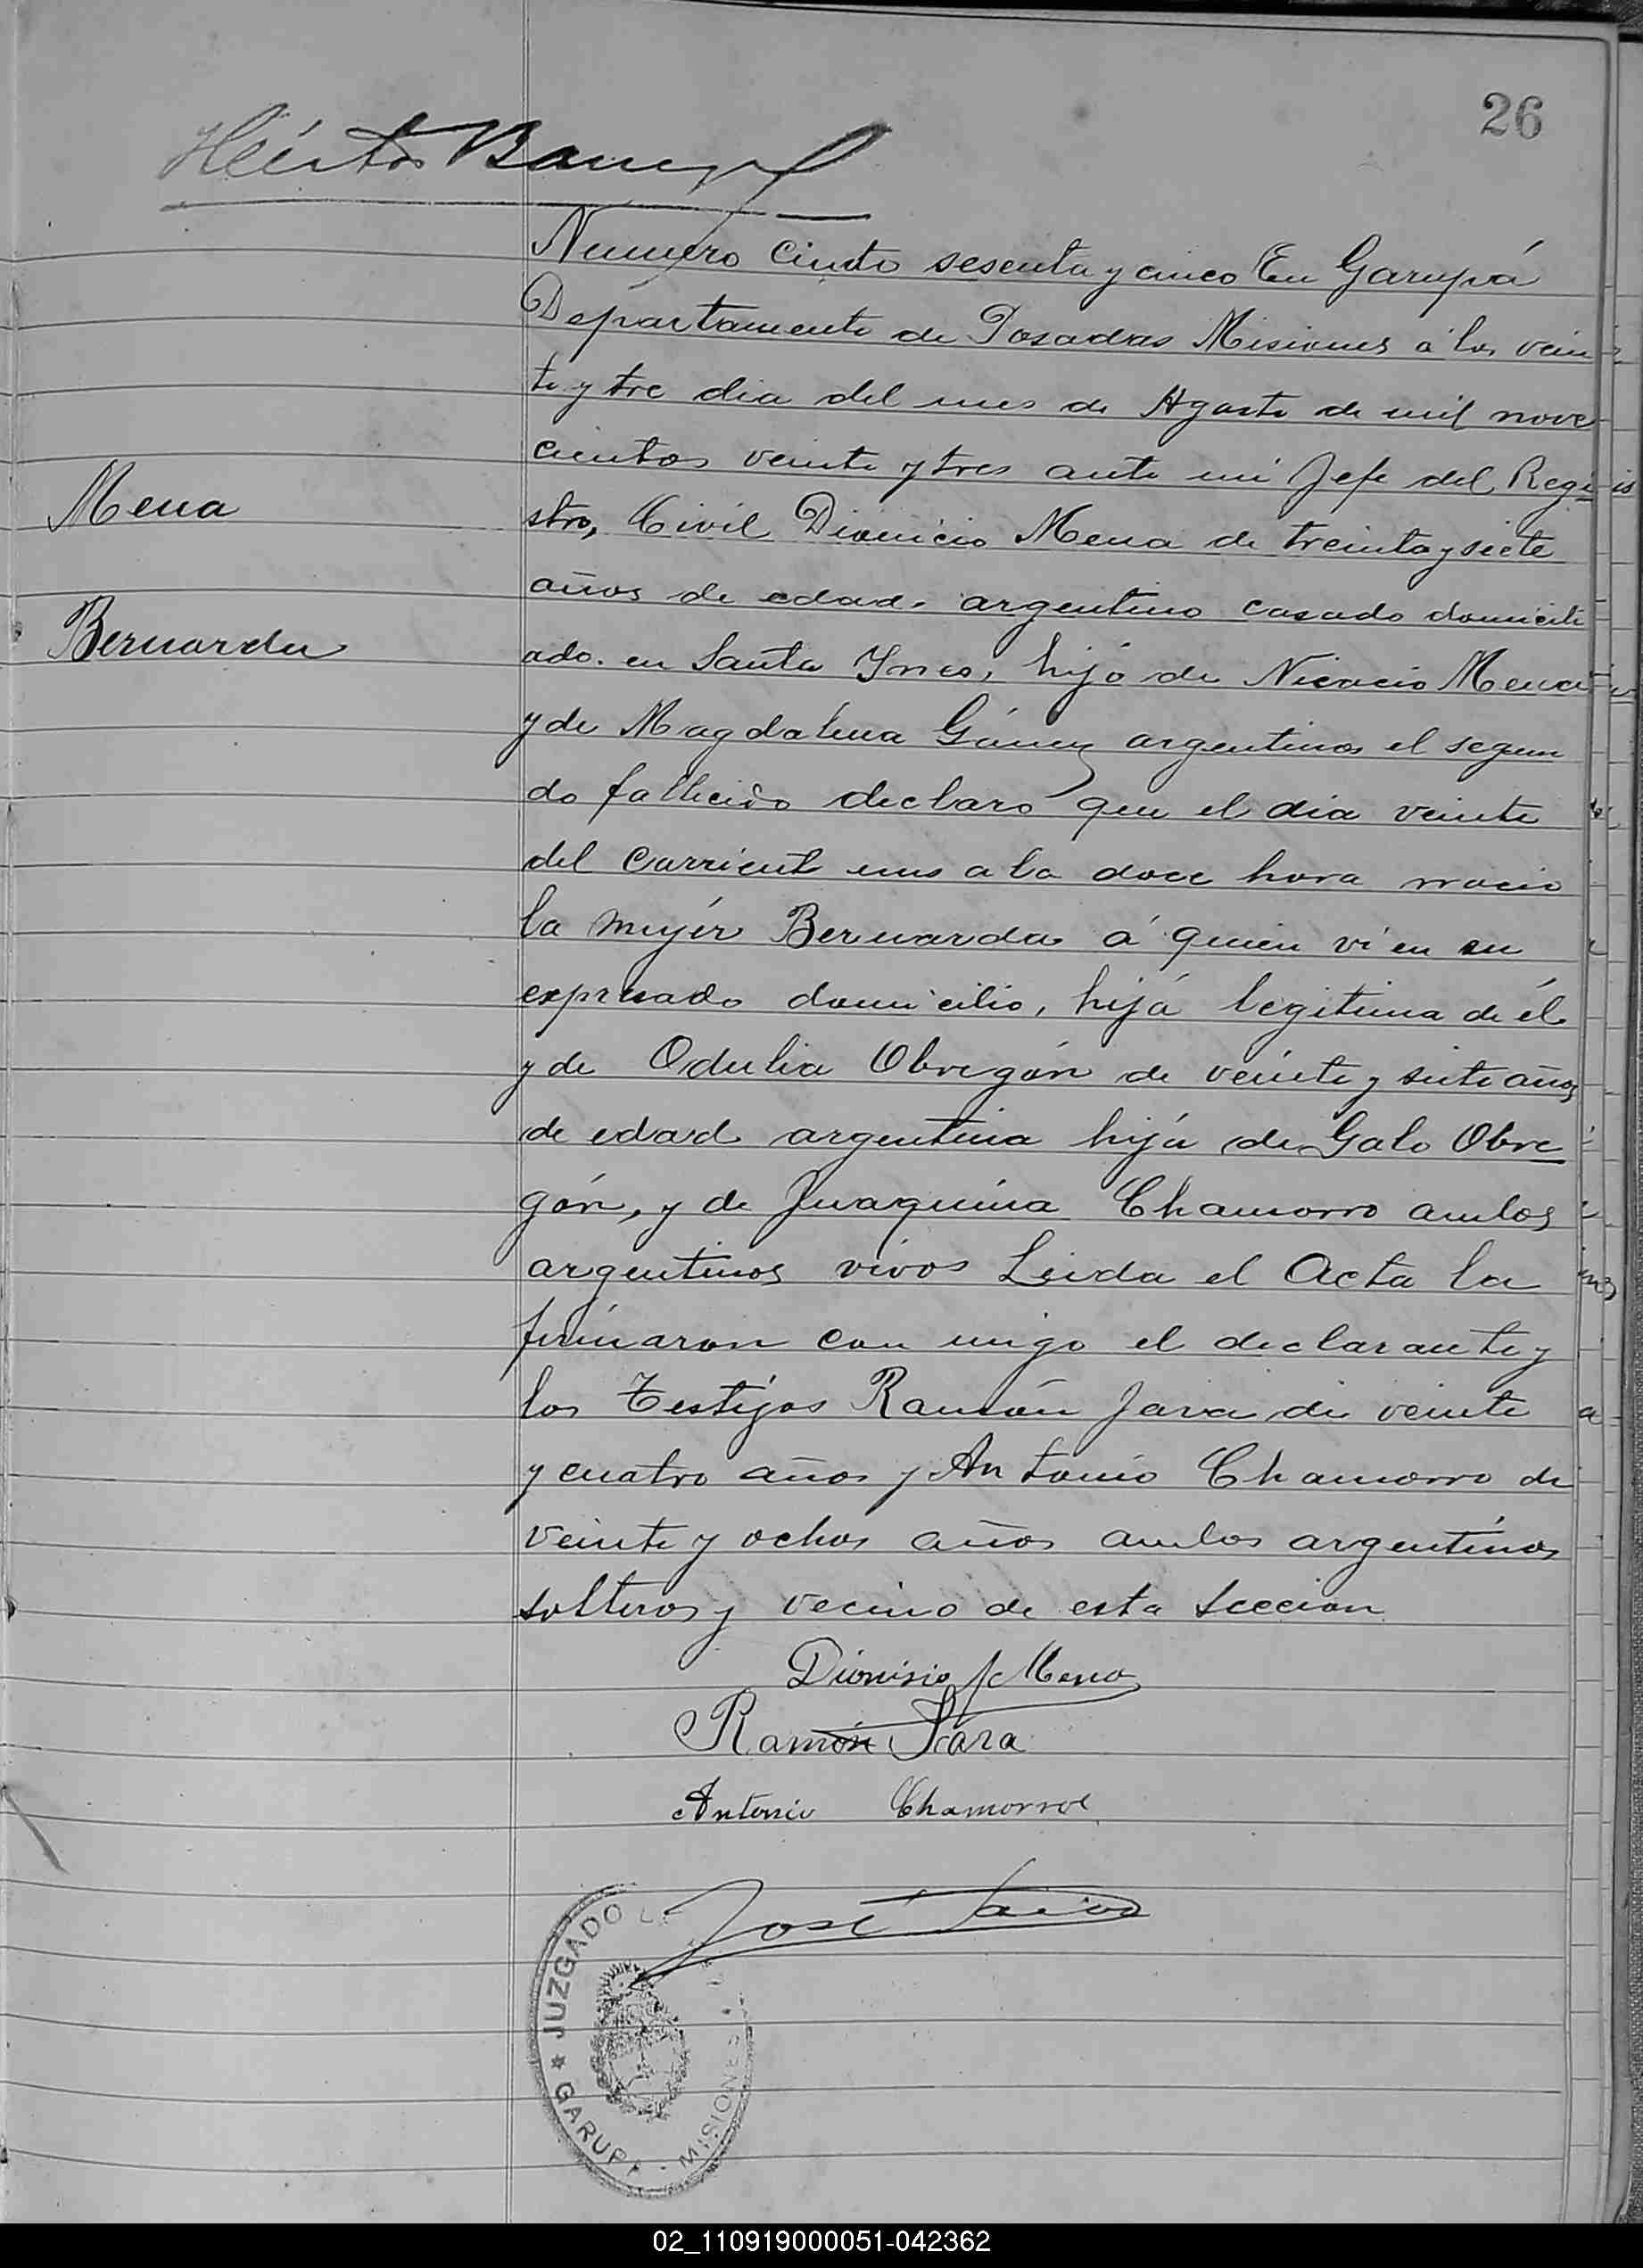 26
Numero Ciento sesenta y cinco En Garupá
Departamento de Posadas Misiones á los vein
te y tre dia del mes de Agosto de mil nove
cientos veinte y tres ante mi Jefe del Regi
Mena
stro, Civil Dionicio Mena de treinta y siete
años de edad. argentino casado domicili
Bernarda
ado. en Santa Ynes, hijo de Nicacio Mena
y de Magdalena Gómez argentinos el segun
do fallecido declaró que el dia veinte
del corrient mes a la doce hora nacio
la mujer Bernarda á quien ví en su
expresado domicilio, hija legitima de él
y de Odulia Obregón de veinte y siete años
de edad argentina hija de Galo Obre
gón, y de Juaquina Chamorro ambos
argentinos vivos Leida el Acta la
firmaron con migo el declarante y
los Testigos Ramón Jara de veinte
y cuatro años y Antonio Chamorro de
veinte y ochos años ambos argentinos
solteros y vecino de esta Seccion
Dionisio Mena
Ramón Jara
Antonio Chamorro
José
JUZGADO
GARUPA - MISIONES
02_110919000051-042362